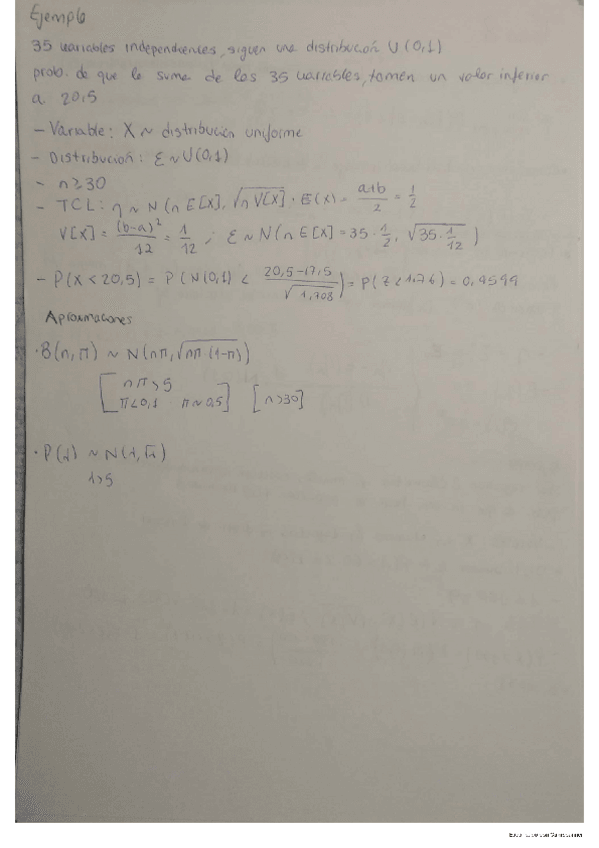 Ejemplo
35 variables independientes, siguen una distribución U(0,1)
prob. de que la suma de las 35 variables, tomen un valor inferior
a 20,5
- Variable: X ~ distribución uniforme
- Distribución: ξ ~ U(0,1)
- n ≥ 30
- TCL: η ~ N(n E[X], √n V[X]) · E(X) = a+b/2 = 1/2
V[X] = (b-a)²/12 = 1/12 ; ξ ~ N(n E[X] = 35 · 1/2, √35 · 1/12)
- P(X < 20,5) = P(N(0,1) < 20,5-17,5/√1,708) = P(Z < 1,76) = 0,9599
Aproximaciones
· B(n, π) ~ N(nπ, √nπ(1-π))
[nπ > 5
π < 0,1 π ~ 0,5] [n > 30]
· P(λ) ~ N(λ, √λ)
λ > 5